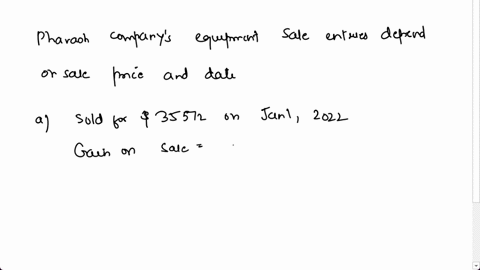 Pharaoh company's equipment sale entries depend
on sale price and date
a) Sold for $35572 on Jan 1, 2022
Gain on sale =